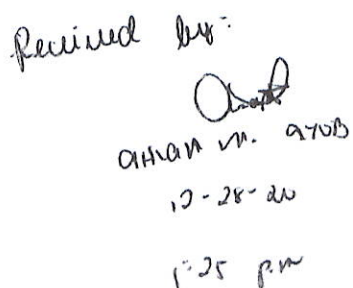 Received by:
M. AYOB
12-28-20
1:25 p.m